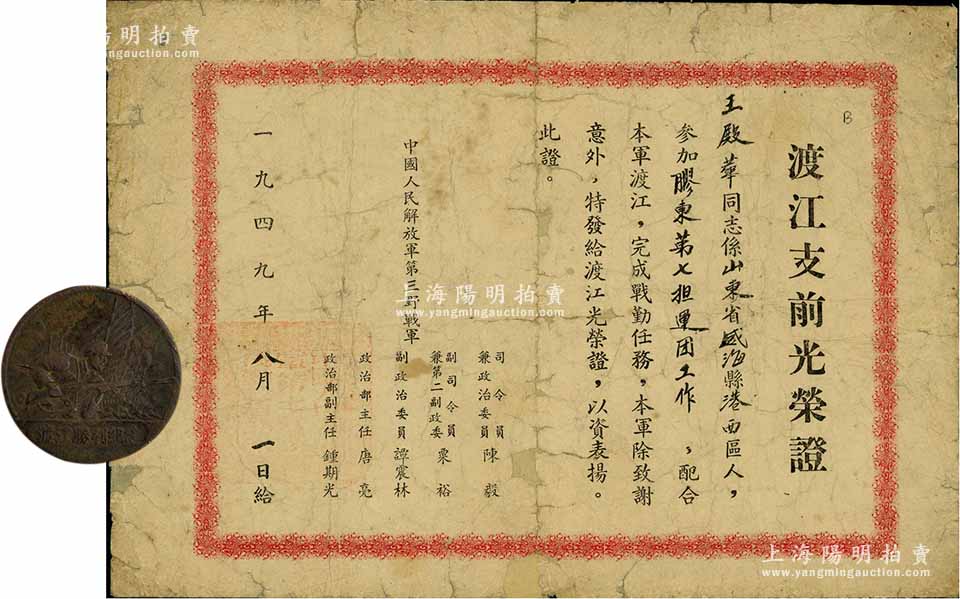 渡江支前光榮證
王殿華同志係山東省威海縣港西區人，
參加膠東第七担運团工作　，配合
本軍渡江，完成戰勤任務，本軍除致謝
意外，特發給渡江光榮證，以資表揚。
此證。
中國人民解放軍第三野戰軍
司令員
兼政治委員
陳毅
副司令員
兼第二副政委
粟裕
副政治委員譚震林
政治部主任唐亮
政治部副主任鍾期光
一九四九年八月一日給
B
上海陽明拍賣
www.yangmingauction.com
上海陽明拍賣
www.yangmingauction.com
陽明拍賣
yangmingauction.com